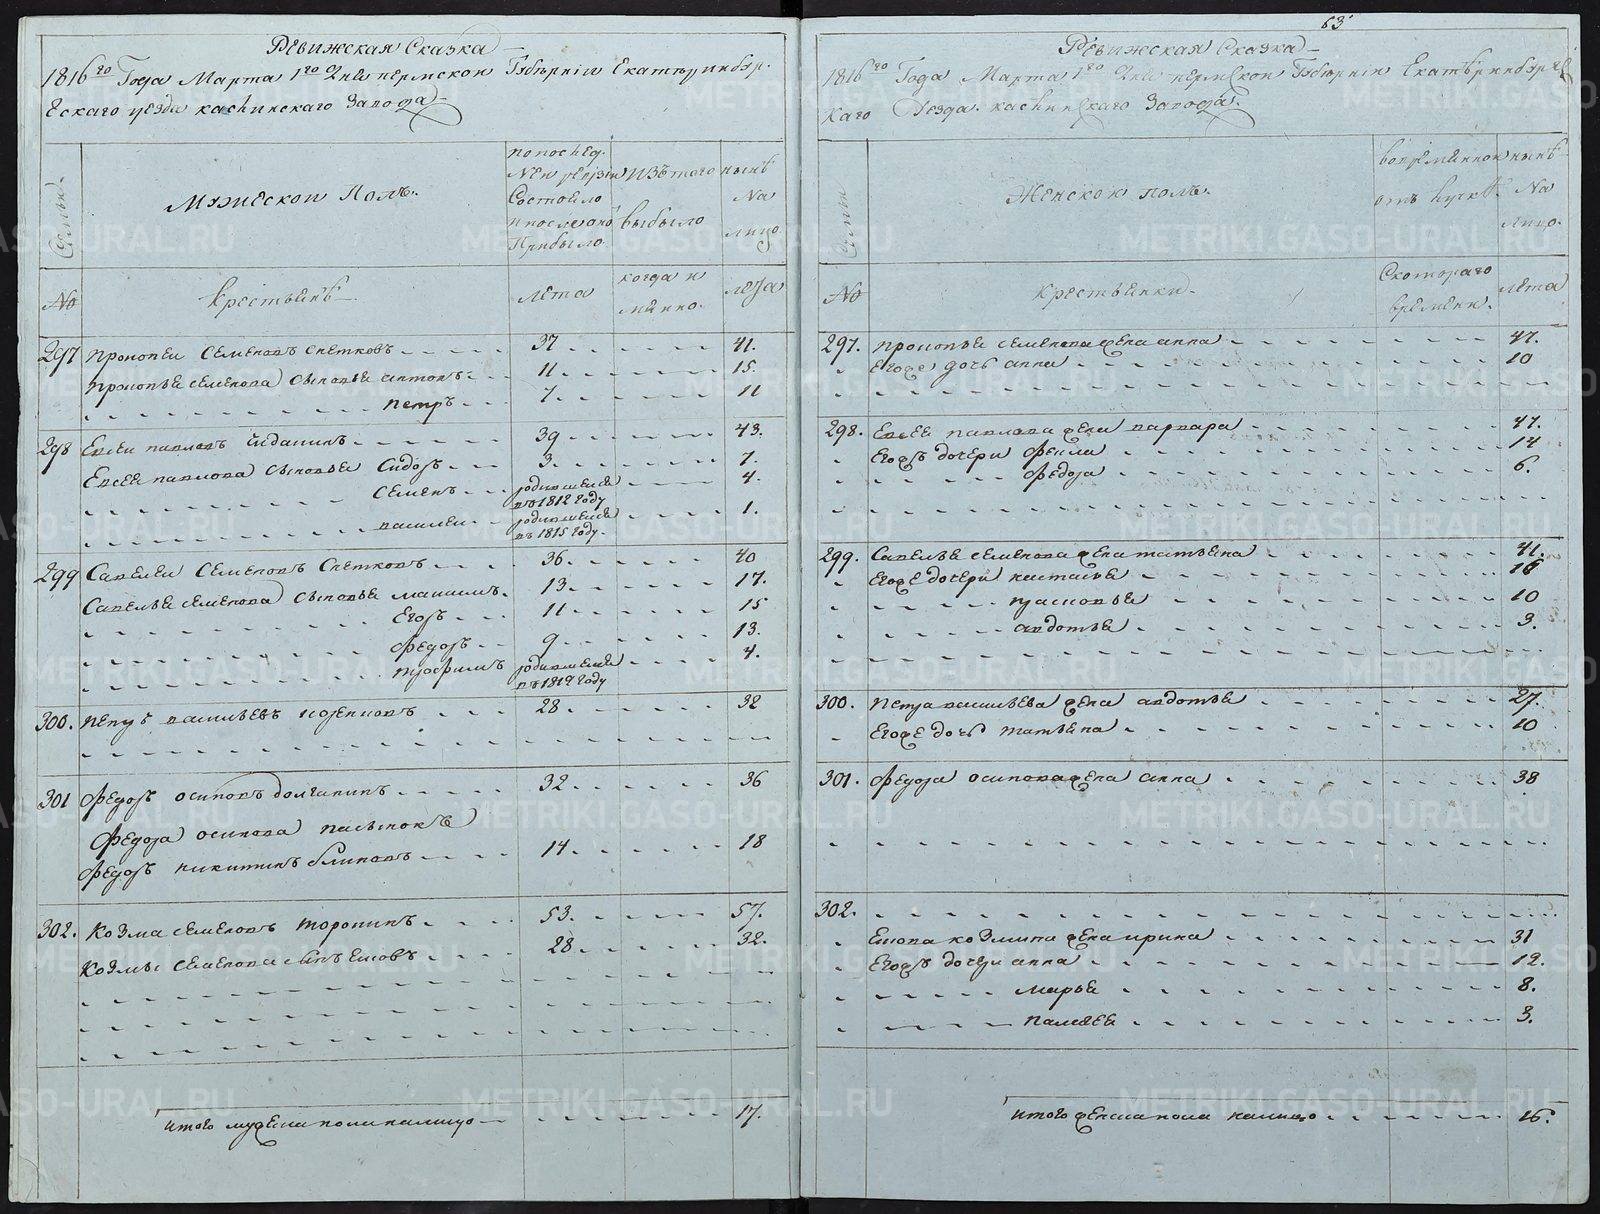 63
Ревижская Сказка
1816го Года Марта 1го Дня пермской Губернiи Екатеринбур-
ескаго уезда каслинскаго Завода
Семьи.
Мужескои Полъ.
по послед.
неи ревизiи
Состояло
и после оной
Прибыло.
Изъ того
выбыло
ныне
На
лицо.
No
крестьяне
лета
когда и
имянно.
лета
297 прокопеи семеновъ 37 41.
прокопья семенова сыновья антонъ 11 15.
петръ 7 11
298 Евсеи павловъ 39 43.
Евсея павлова сыновья Сидоръ 3. 7.
Семенъ родившеися въ 1812 году 4.
василеи родившеися въ 1815 году. 1.
299 Савелеи Семеновъ 36. 40
Савелья семенова сыновья 13. 17.
Егоръ 11 15
Федоръ 9 13.
трофимъ родившеися въ 1812 году 4.
300. петръ васильевъ 28 32
301 Федоръ осиповъ 32 36
Федора осипова пасынокъ
Федоръ никитинъ блиновъ 14 18
302. Козма семеновъ торопинъ 53. 57.
Козмы семенова сынъ 28 32.
итого мужеска пола налицо 17.
Ревижская Сказка
1816го Года Марта 1го Дня пермской Губернiи Екатеринбурс
каго уезда каслинскаго Завода.
Семьи
Женскои полъ.
во временнои
отлучке.
ныне
На
лицо.
No
крестьянки.
Скотораго
времени.
лета
297. прокопья семенова жена анна 47.
Егоже дочь анна 10
298. Евсея павлова жена варвара 47.
Егожъ дочери Фекла 14
Федора 6.
299. Савелья семенова жена татьяна 41.
Егоже дочери настасья 16
прасковья 10
авдотья 3.
300. Петра васильева жена авдотья 27.
Егоже дочь татьяна 10
301. Федора осипова жена анна 38
302.
козмина жена ирина 31
Егожъ дочери анна 12.
марья 8.
палагея 3.
итого женска пола налицо 16.
METRIKI.GASO-URAL.RU